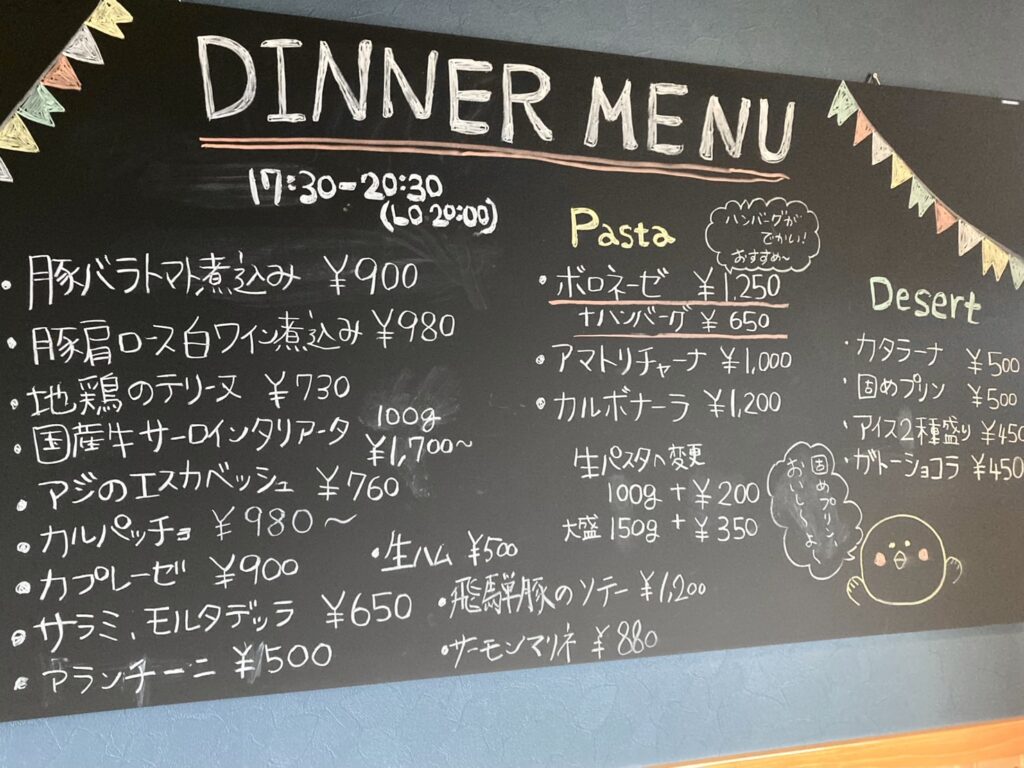 DINNER MENU
17:30-20:30
(LO 20:00)
・豚バラトマト煮込み ¥900
・豚肩ロース白ワイン煮込み ¥980
・地鶏のテリーヌ ¥730
・国産牛サーロインタリアータ 100g ¥1,700~
・アジのエスカベッシュ ¥760
・カルパッチョ ¥980~
・カプレーゼ ¥900
・サラミ、モルタデッラ ¥650
・アランチーニ ¥500
・生ハム ¥500
・飛騨豚のソテー ¥1,200
・サーモンマリネ ¥880
Pasta
ハンバーグが
でかい!
おすすめ~
・ボロネーゼ ¥1,250
+ハンバーグ ¥650
・アマトリチャーナ ¥1,000
・カルボナーラ ¥1,200
生パスタへ変更
100g +¥200
大盛 150g +¥350
Desert
・カタラーナ ¥500
・固めプリン ¥500
・アイス2種盛り ¥450
・ガトーショコラ ¥450
固めプリン
おいしいよ